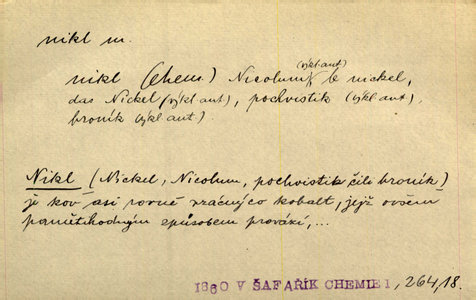 nikl m.
(výkl aut)
nikl (chem.) Nicolum, le nickel,
das Nickel (výkl aut), pochvistík (výkl aut),
broník (výkl aut)
Nikl (Nickel, Nicolum, pochvistík čili broník)
je kov asi rovně vzácný co kobalt, jejž ovšem
pamětihodným způsobem provází,...
1860 V ŠAFAŘÍK CHEMIE I, 264,18.